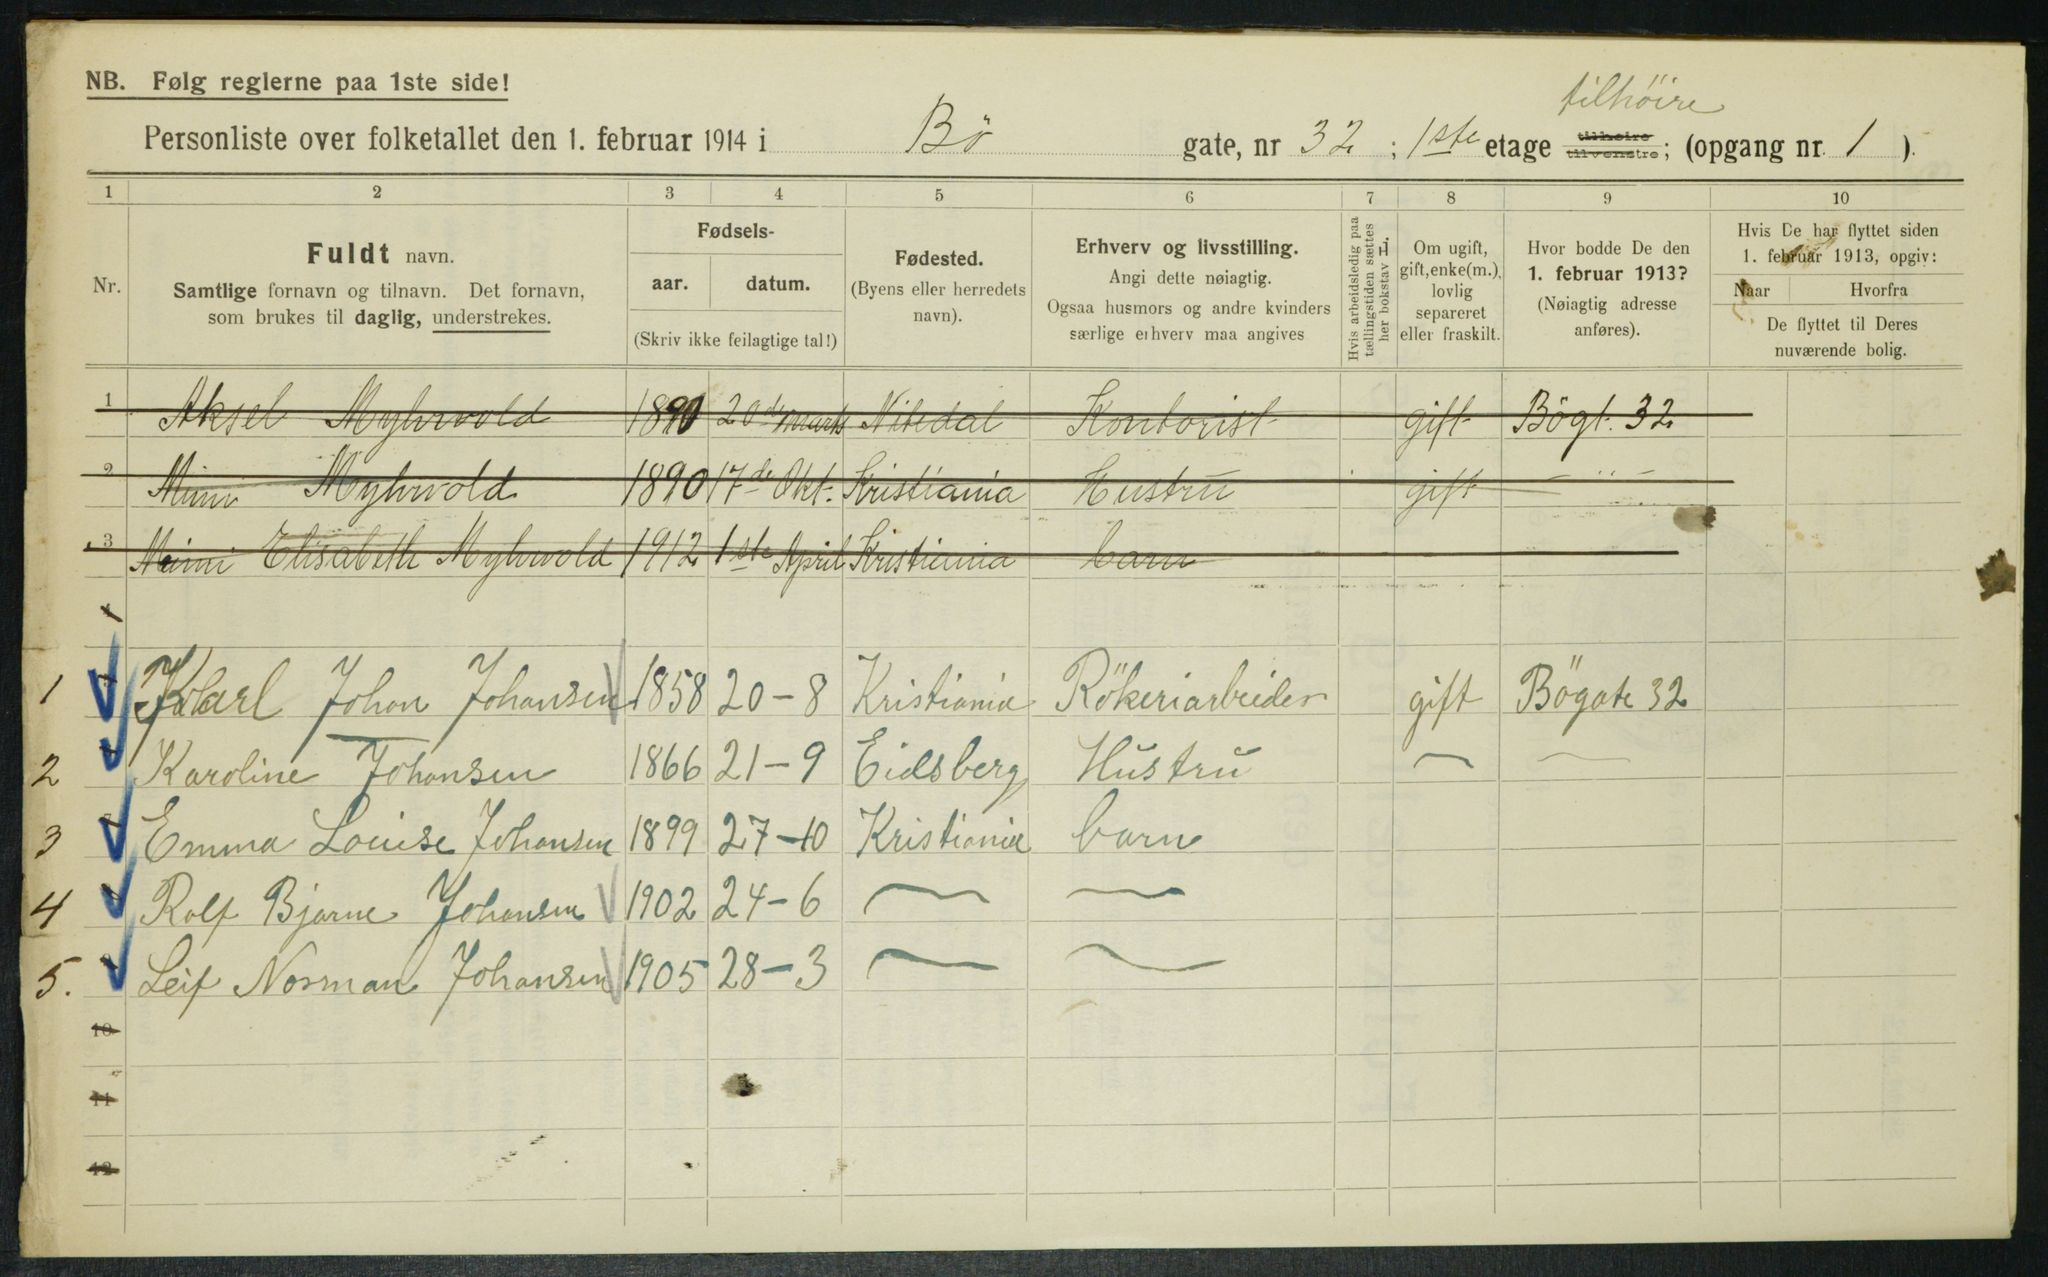 NB. Følg reglerne paa 1ste side!
tilhöire
Personliste over folketallet den 1. februar 1914 i Bö gate, nr 32 ; 1ste etage tilhøire tilvenstre ; (opgang nr. 1 ).
1 2 3 4 5 6 7 8 9 10
Nr.
Fuldt navn.
Samtlige fornavn og tilnavn. Det fornavn,
som brukes til daglig, understrekes.
Fødsels-
aar. datum.
(Skriv ikke feilagtige tal!)
Fødested.
(Byens eller herredets
navn).
Erhverv og livsstilling.
Angi dette nøiagtig.
Ogsaa husmors og andre kvinders
særlige erhverv maa angives
Hvis arbeidsledig paa
tællingstiden sættes
her bokstav L.
Om ugift,
gift, enke(m.),
lovlig
separeret
eller fraskilt.
Hvor bodde De den
1. februar 1913?
(Nøiagtig adresse
anføres).
Hvis De har flyttet siden
1. februar 1913, opgiv:
Naar Hvorfra
De flyttet til Deres
nuværende bolig.
1 Aksel Myhrvold 1890 20de marts Nitedal Kontorist gift Bögt. 32
2 Mimi Myhrvold 1890 17de Okt. Kristiania Hustru gift — " —
3 Mimi Elisabeth Myhrvold 1912 1ste April Kristiania barn
1 Karl Johan Johansen 1858 20-8 Kristiania Rökeriarbeider gift Bögate 32
2 Karoline Johansen 1866 21-9 Eidsberg Hustru ~ ~
3 Emma Louise Johansen 1899 27-10 Kristiania barn
4 Rolf Bjarne Johansen 1902 24-6 ~ ~
5. Leif Norman Johansen 1905 28-3 ~ ~
10
11
12